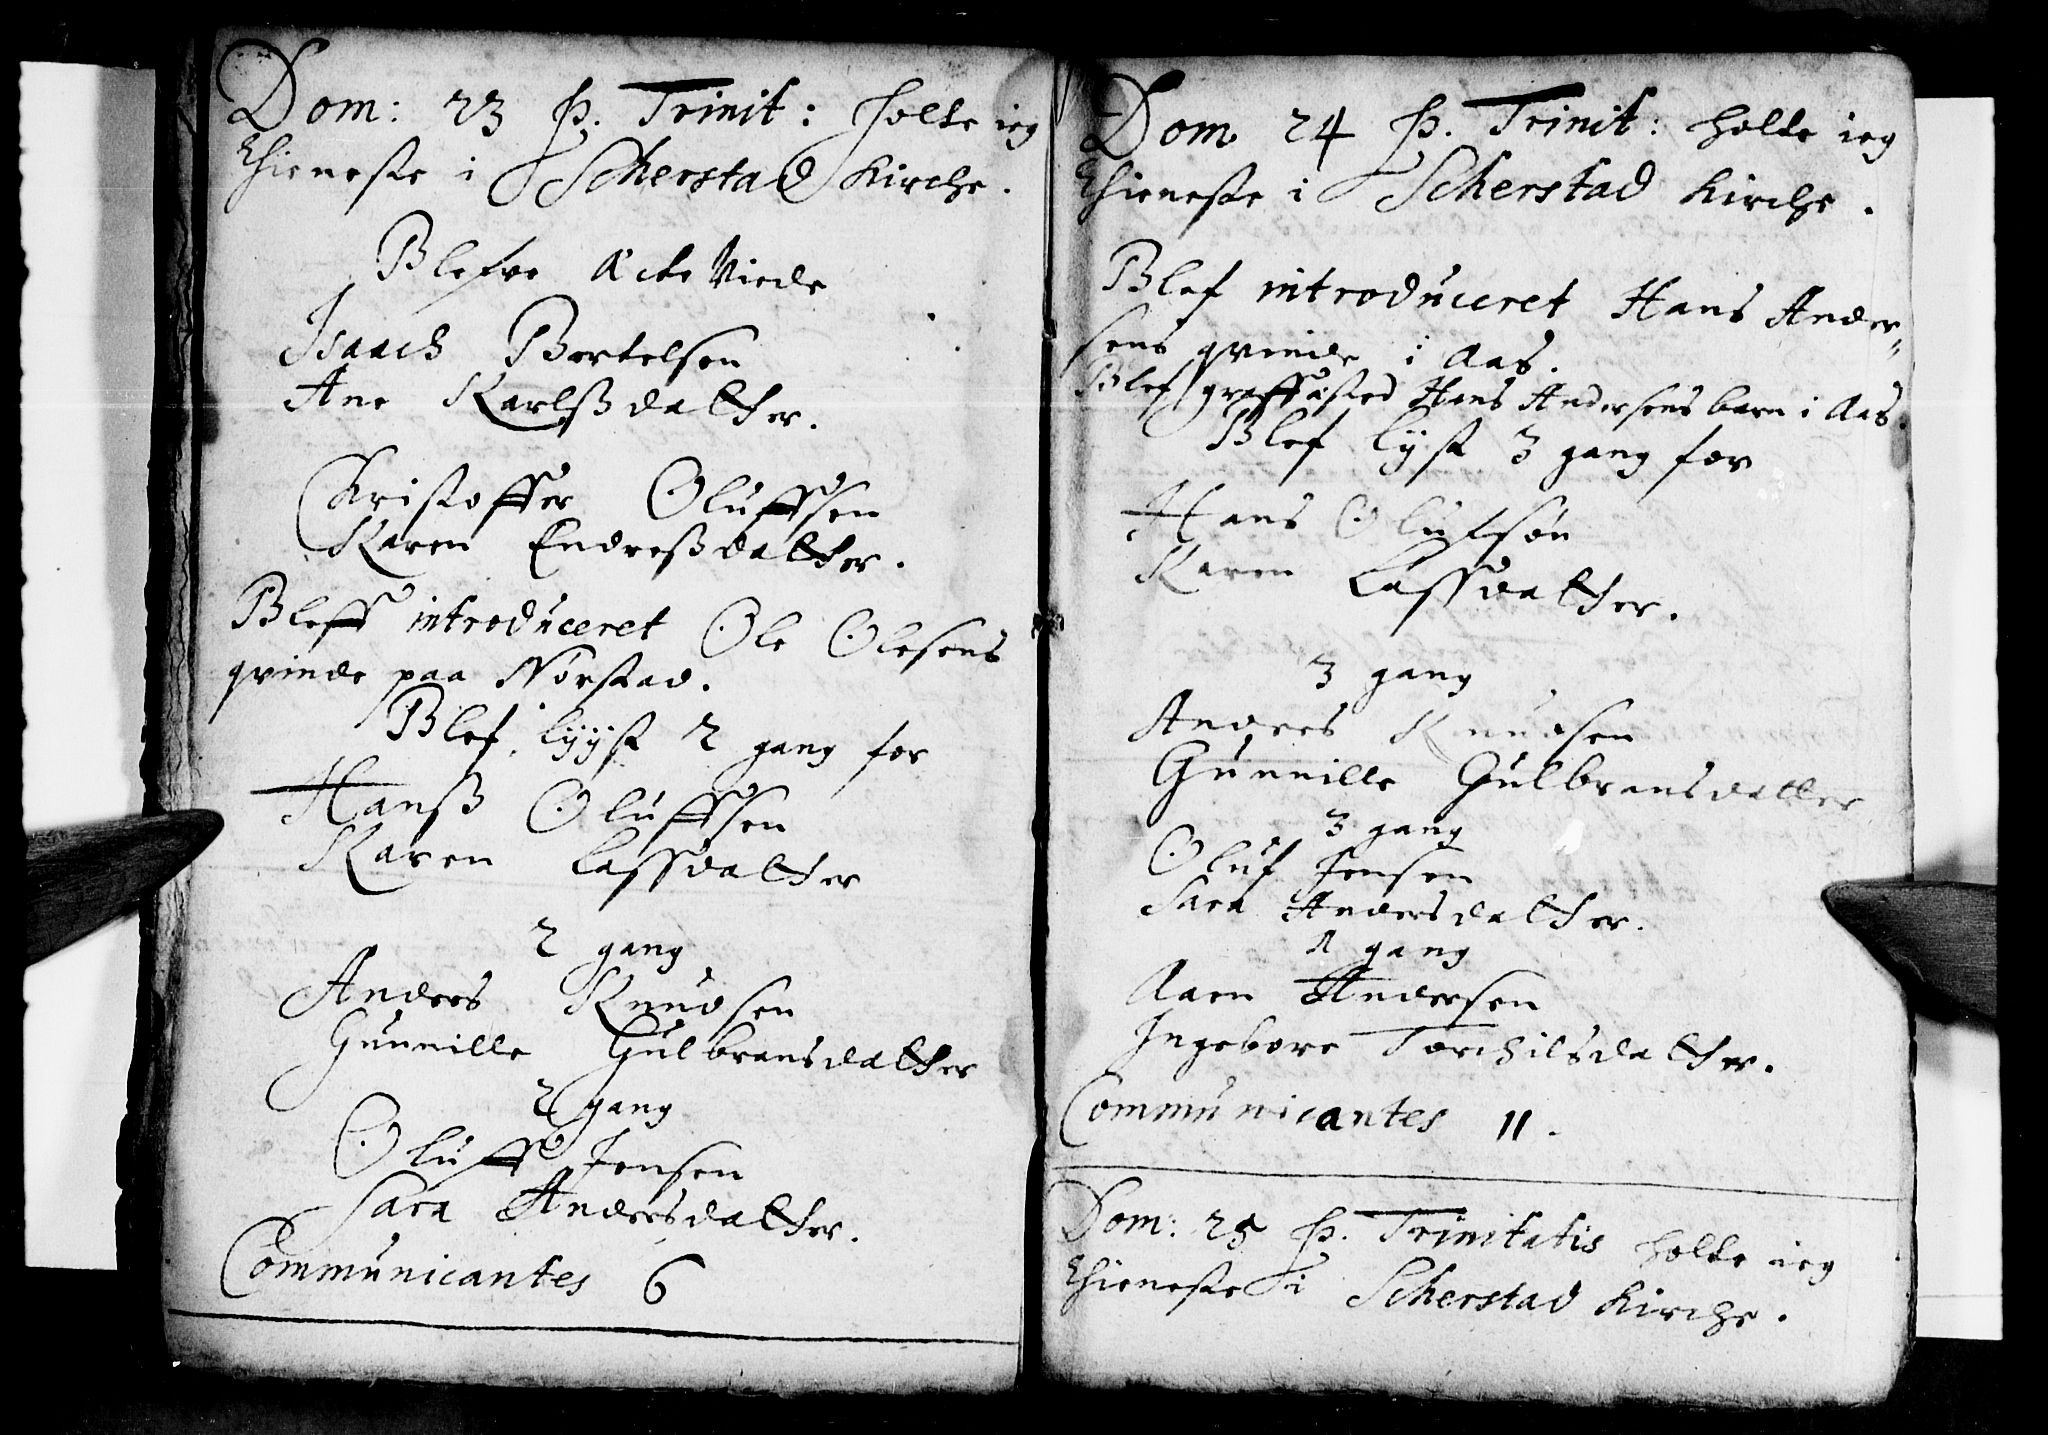 Dom: 23 p. Trinit: holte ieg
thieneste i Scherstad Kirche.
Blefve Ächte Viede
Isaach Bertelsen
Ane Karlßdatther.
Christoffer Oluffsen
Karen Endreßdatther.
Bleff introduceret Ole Olesens
qvinde paa Norstad.
Blef lÿÿst 2 gang for
Hanß Oluffsen
Karen Lassdatther
2 gang
Anders Knudsen
Gunnille Gulbransdatther
2 gang
Oluff Jensen
Sara Andersdatther.
Communicantes 6
Dom 24 p. Trinit: holte ieg
thieneste i Scherstad Kirche.
Blef introduceret Hans Ander„
sens qvinde i Aas.
Blef graffästed Hans Andersens barn i Aas.
Blef lÿst 3 gang for
Hans Olufsøn
Karen Lassdatther.
3 gang
Anders Knudsen
Gunnille Gulbransdatter
3 gang
Oluf Jensen
Sara Andersdatther.
1 gang
Aaen Andersen
Ingebore Torchilsdatther.
Communicantes 11.
Dom: 25 p. Trinitatis holte ieg
thieneste i Scherstad Kirche.